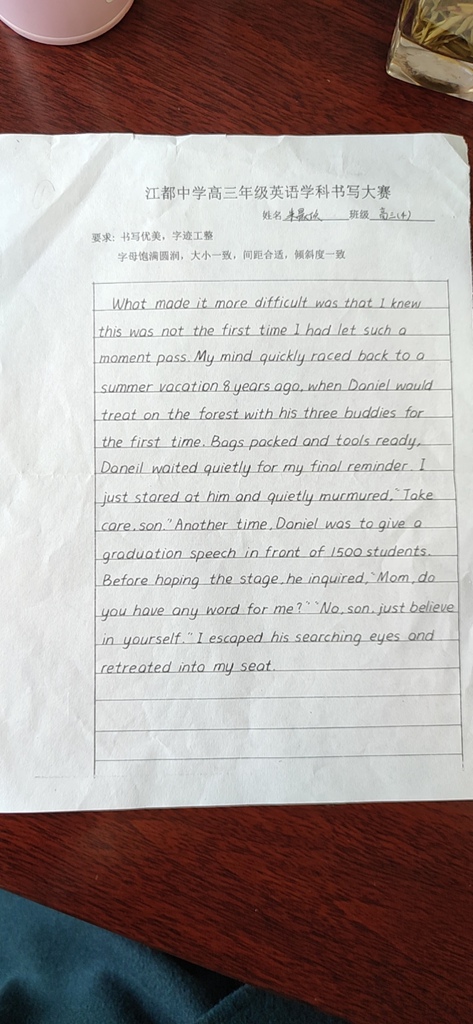 江都中学高三年级英语学科书写大赛
姓名 班级 高三(4)
要求: 书写优美，字迹工整
字母饱满圆润，大小一致，间距合适，倾斜度一致
What made it more difficult was that I knew
this was not the first time I had let such a
moment pass. My mind quickly raced back to a
summer vacation 8 years ago, when Daniel would
treat on the forest with his three buddies for
the first time. Bags packed and tools ready,
Daneil waited quietly for my final reminder. I
just stared at him and quietly murmured, "Take
care, son." Another time, Daniel was to give a
graduation speech in front of 1500 students.
Before hoping the stage, he inquired, "Mom, do
you have any word for me?" "No, son, just believe
in yourself." I escaped his searching eyes and
retreated into my seat.